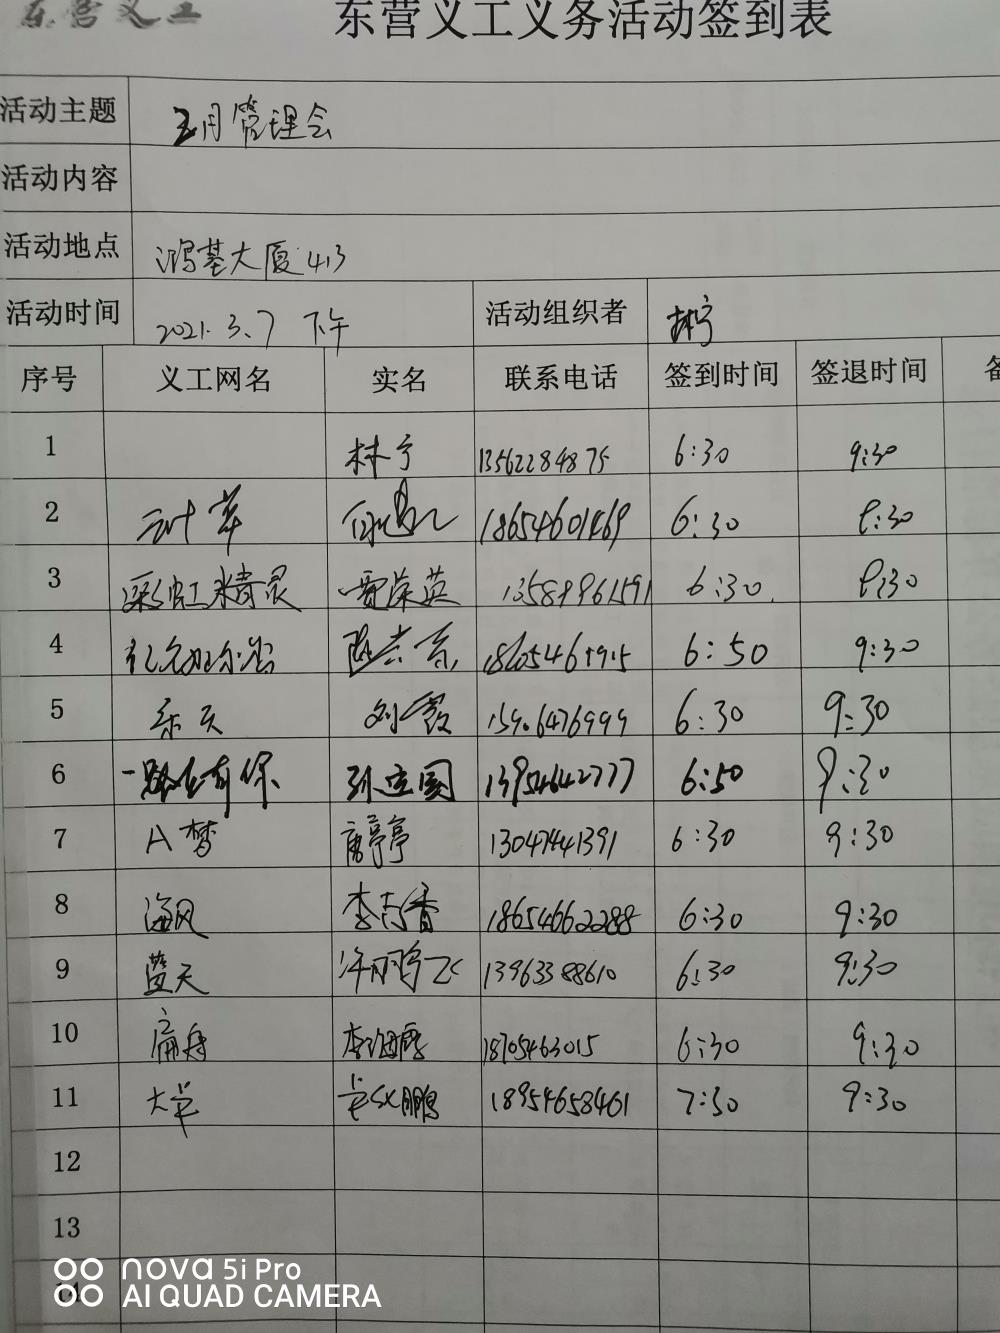 东营义工
东营义工义务活动签到表
活动主题 三月管理会
活动内容
活动地点 鸿基大厦413
活动时间 2021.3.7 下午 活动组织者 林宁
序号 义工网名 实名 联系电话 签到时间 签退时间 备
1 林宁 13562284875 6:30 9:30
2 18654601469 6:30 9:30
3 彩虹精灵 贾荣英 13589961591 6:30 9:30
4 6:50 9:30
5 乐天 刘霞 15906476999 6:30 9:30
6 一路有你 孙立国 13954642777 6:50 9:30
7 A梦 唐亭亭 13047441391 6:30 9:30
8 海风 李志香 18654662288 6:30 9:30
9 蓝天 许鹏飞 13963388610 6:30 9:30
10 扁舟 18705463015 6:30 9:30
11 大单 鹏 18954658461 7:30 9:30
12
13
14
nova 5i Pro
AI QUAD CAMERA